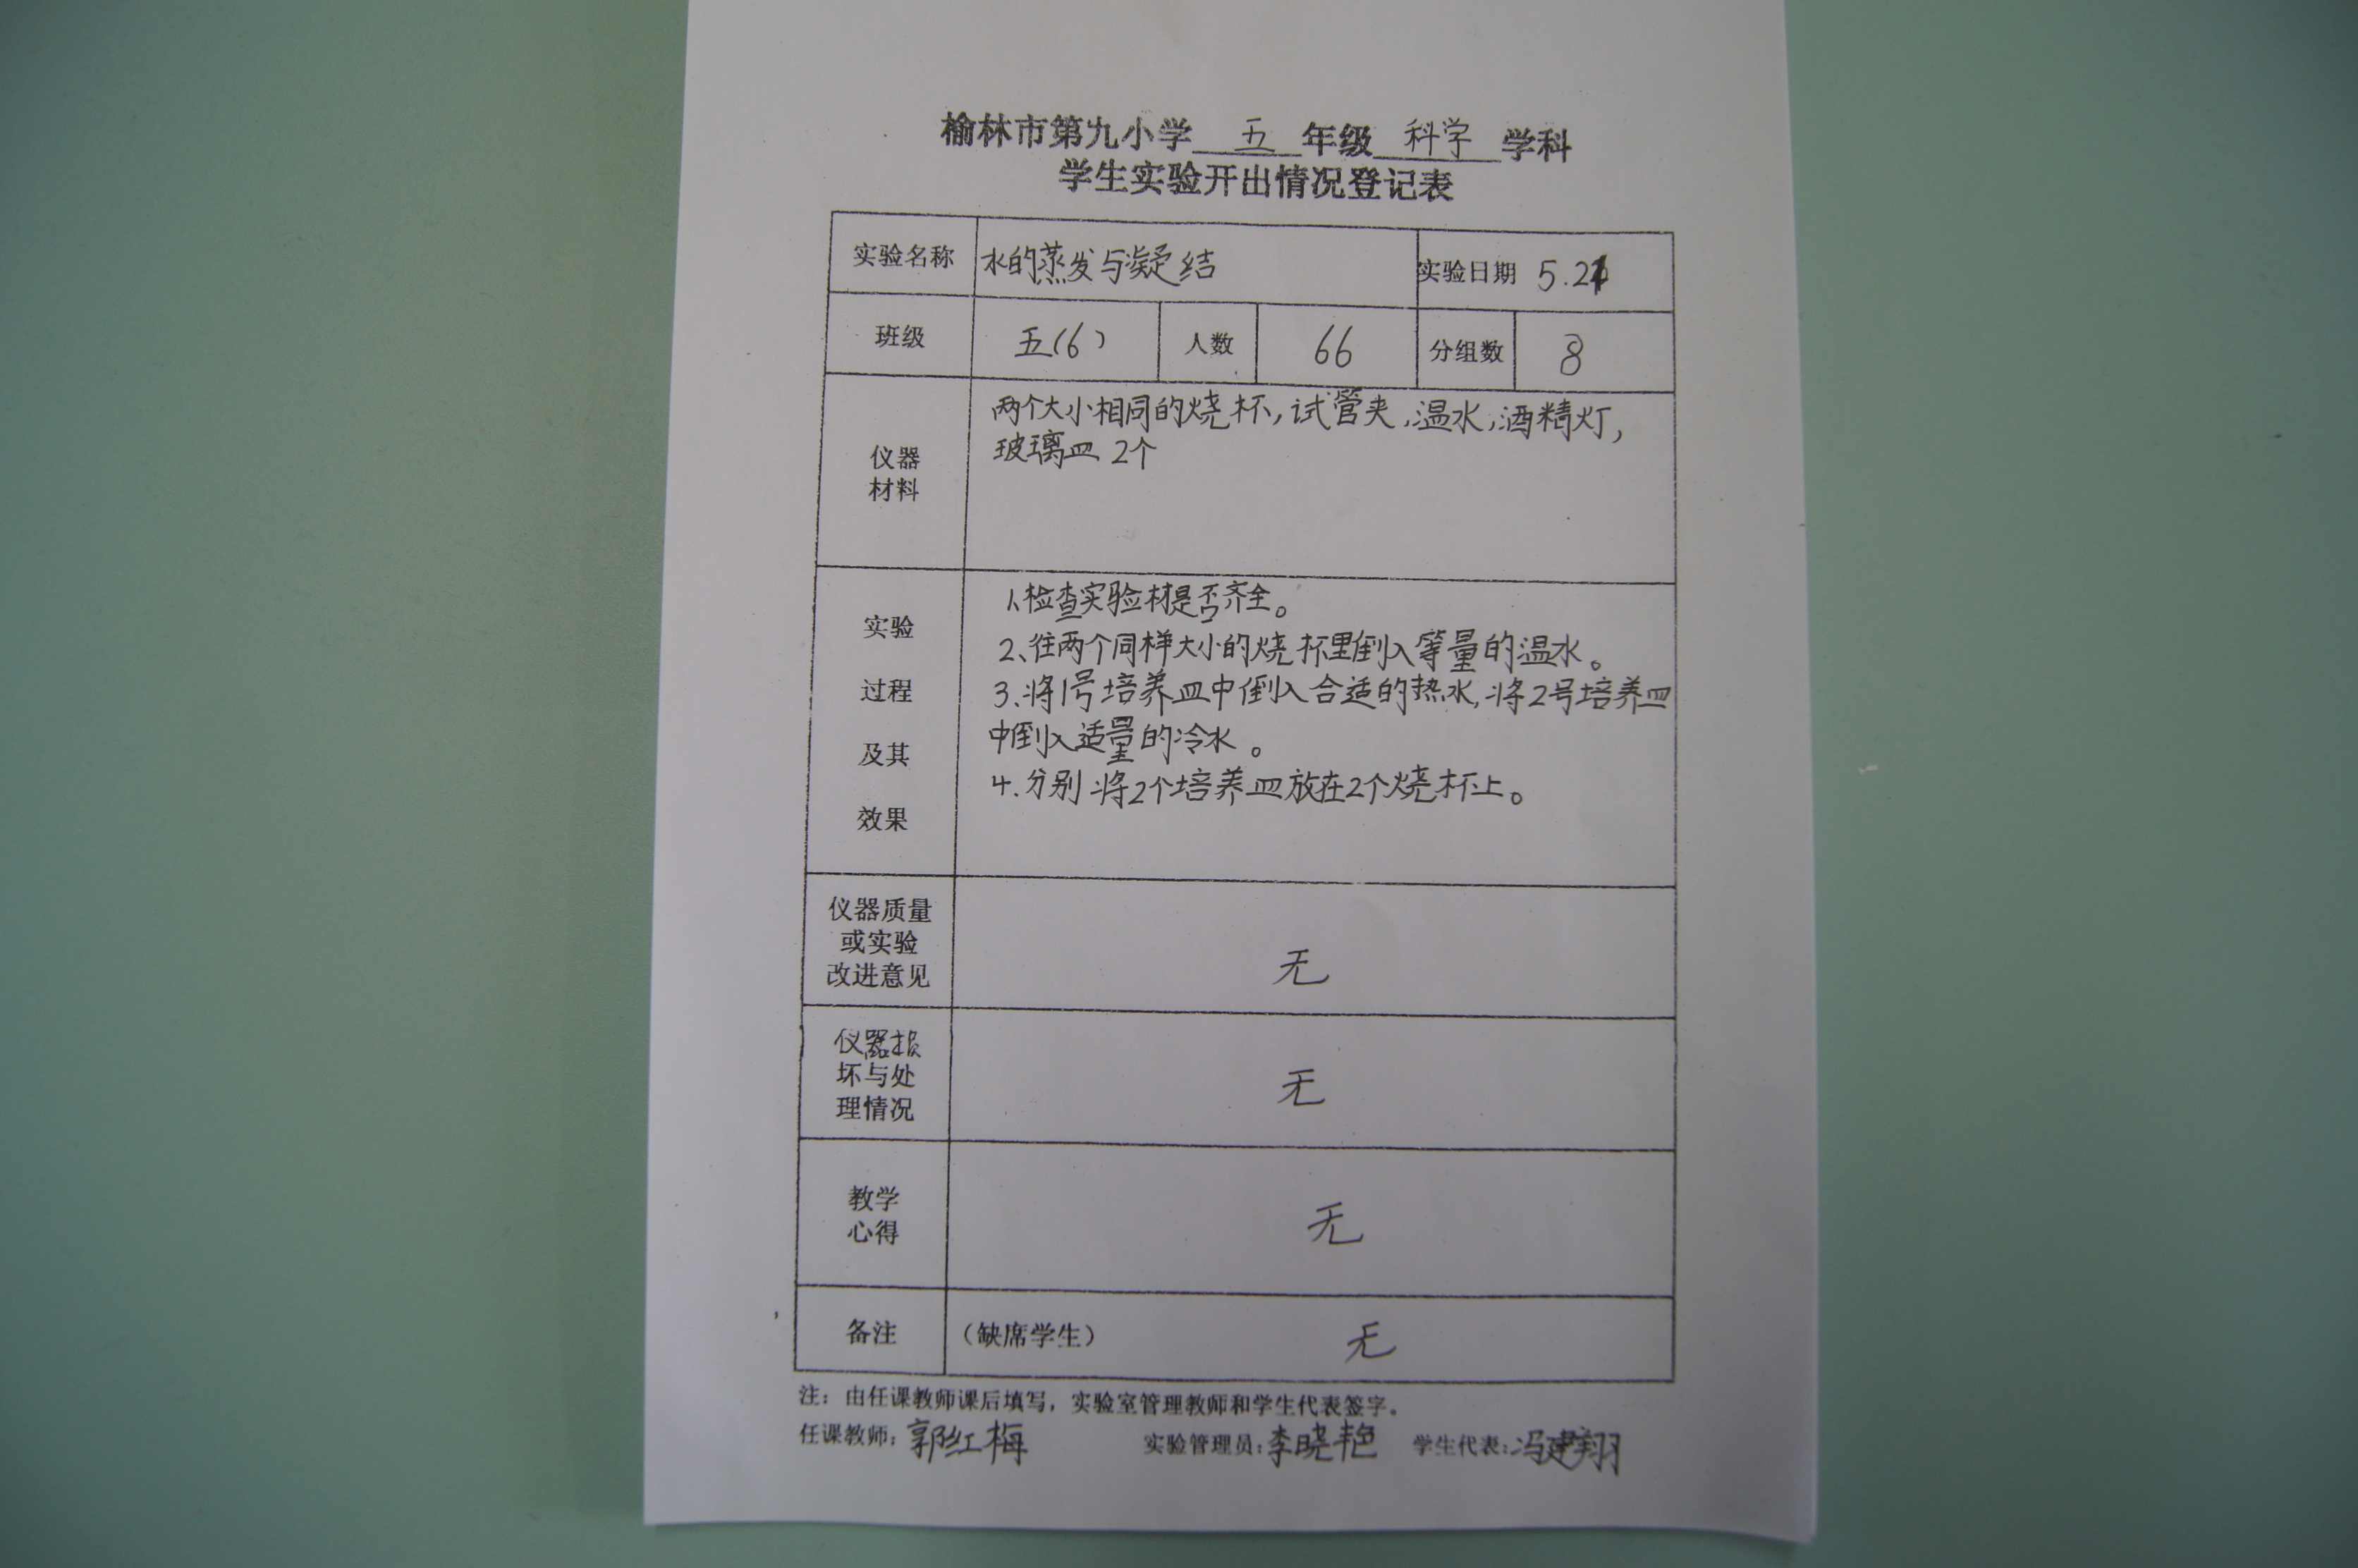 榆林市第九小学 五 年级 科学 学科
学生实验开出情况登记表
实验名称 水的蒸发与凝结 实验日期 5.21
班级 五(6) 人数 66 分组数 8
仪器
材料
两个大小相同的烧杯,试管夹,温水,酒精灯,
玻璃皿2个
实验
过程
及其
效果
1、检查实验材是否齐全。
2、往两个同样大小的烧杯里倒入等量的温水。
3.将1号培养皿中倒入合适的热水,将2号培养皿
中倒入适量的冷水。
4.分别将2个培养皿放在2个烧杯上。
仪器质量
或实验
改进意见
无
仪器损
坏与处
理情况
无
教学
心得
无
备注 (缺席学生) 无
注:由任课教师课后填写,实验室管理教师和学生代表签字。
任课教师:郭红梅 实验管理员:李晓艳 学生代表:冯建翔